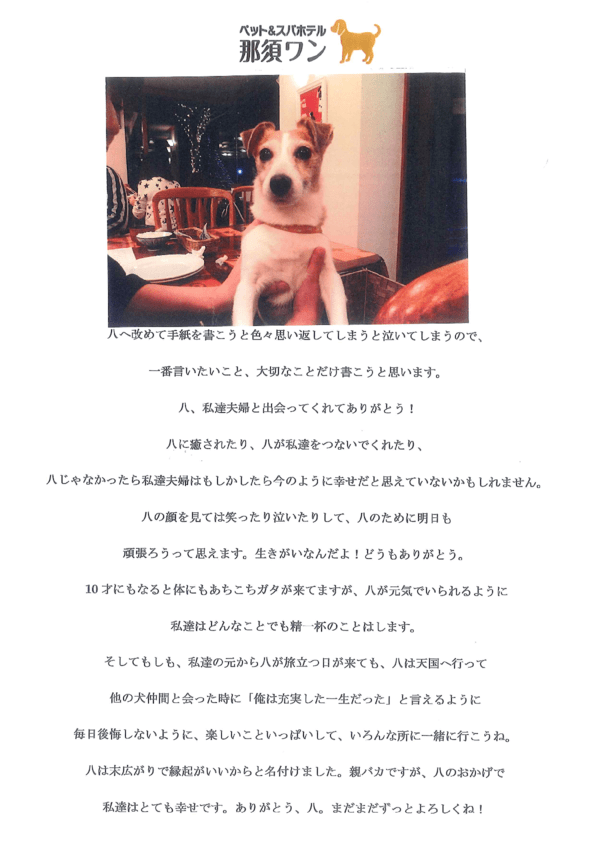 ペット&スパホテル
那須ワン
八へ改めて手紙を書こうと色々思い返してしまうと泣いてしまうので、
一番言いたいこと、大切なことだけ書こうと思います。
八、私達夫婦と出会ってくれてありがとう！
八に癒されたり、八が私達をつないでくれたり、
八じゃなかったら私達夫婦はもしかしたら今のように幸せだと思えていないかもしれません。
八の顔を見ては笑ったり泣いたりして、八のために明日も
頑張ろうって思えます。生きがいなんだよ！どうもありがとう。
10才にもなると体にもあちこちガタが来てますが、八が元気でいられるように
私達はどんなことでも精一杯のことはします。
そしてもしも、私達の元から八が旅立つ日が来ても、八は天国へ行って
他の犬仲間と会った時に「俺は充実した一生だった」と言えるように
毎日後悔しないように、楽しいこといっぱいして、いろんな所に一緒に行こうね。
八は末広がりで縁起がいいからと名付けました。親バカですが、八のおかげで
私達はとても幸せです。ありがとう、八。まだまだずっとよろしくね！